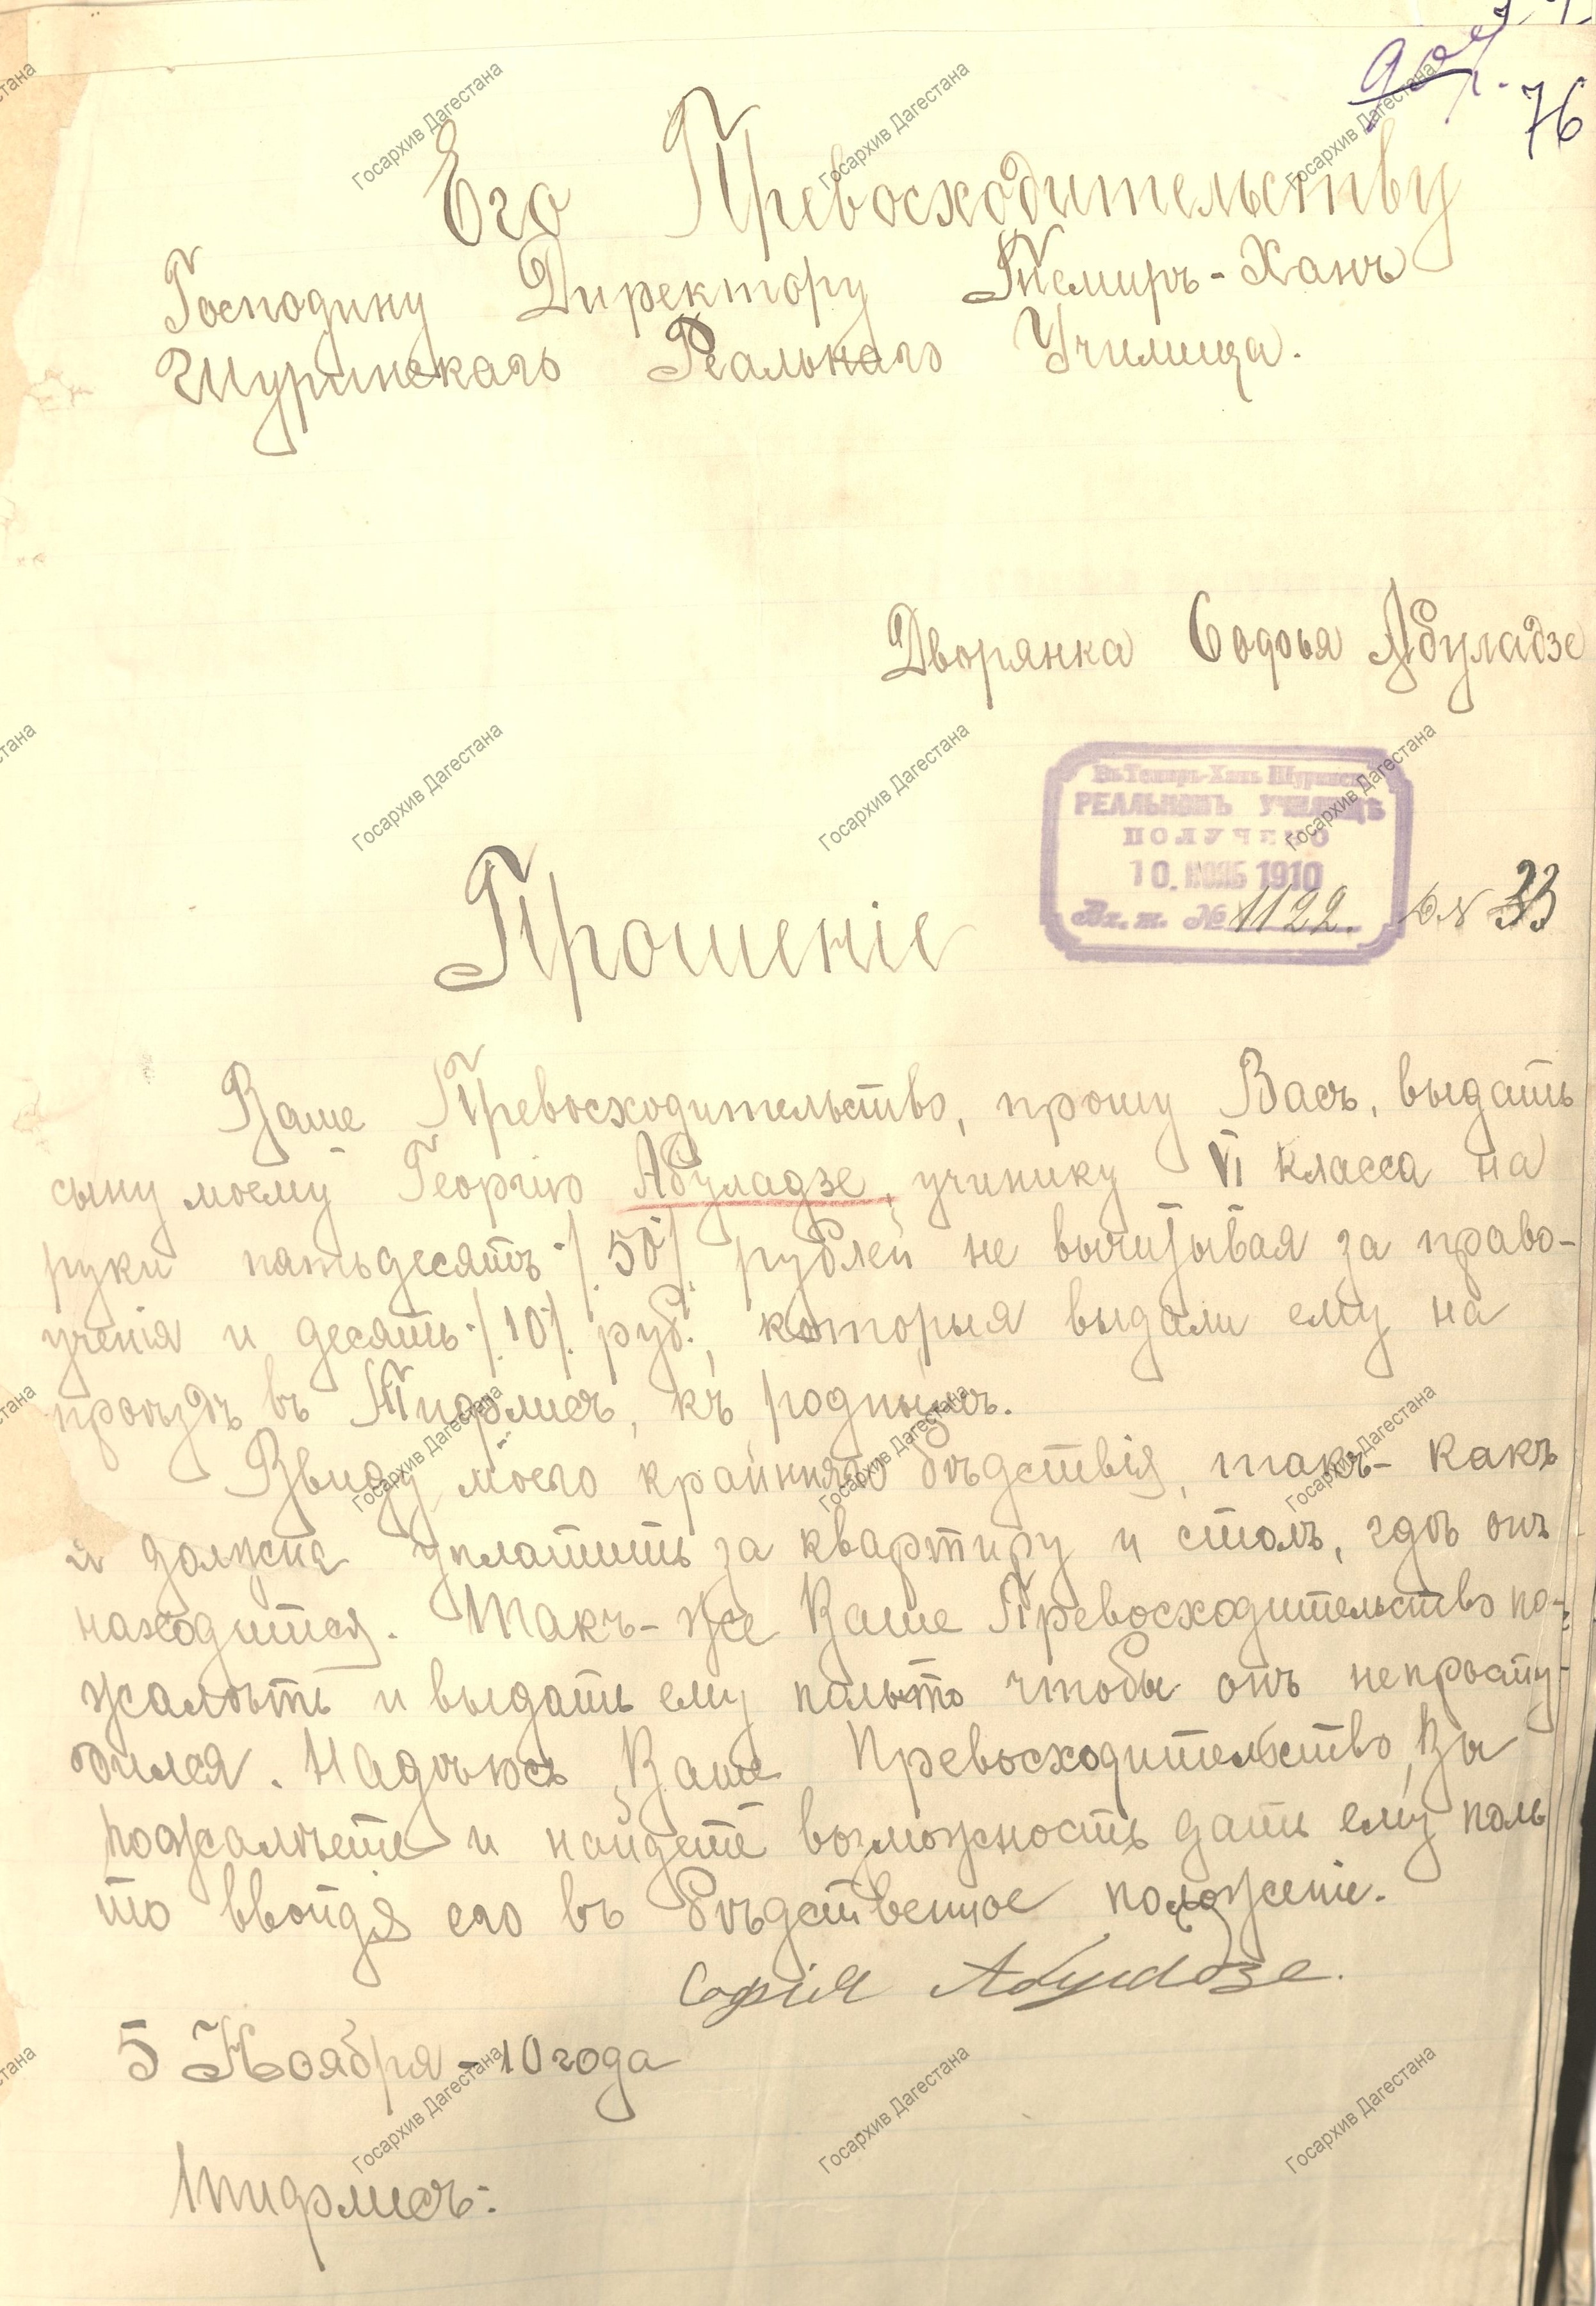 76
Его Превосходительству
Господину Директору Темиръ-Ханъ
Шуринскаго Реальнаго Училища.
Дворянка Софья Абуладзе
Въ Темиръ-Ханъ Шуринск.
РЕАЛЬНОМЪ УЧИЛИЩѢ
ПОЛУЧЕНО
10. НОЯБ 1910
Вх. ж. № 1122.
33
Прошеніе
Ваше Превосходительство, прошу Васъ, выдать
сыну моему Георгію Абуладзе, ученику VI класса на
руки пятьдесятъ ./. 50 ./. рублей не вычитывая за право-
ученія и десять ./. 10 ./. руб., которыя выдали ему на
проѣздъ въ Тифлисъ, къ роднымъ.
Ввиду моего крайняго бѣдствія, такъ-какъ
я должна уплатить за квартиру и столъ, гдѣ онъ
находится. Такъ-же Ваше Превосходительство по-
жалѣть и выдать ему пальто чтобы онъ непросту-
дился. Надѣюсь Ваше Превосходительство, Вы
пожалѣете и найдете возможность дать ему паль
то ввойдя его въ бѣдственное положеніе.
Софія Абуладзе.
5 Ноября -10 года
Тифлисъ.
Госархив Дагестана